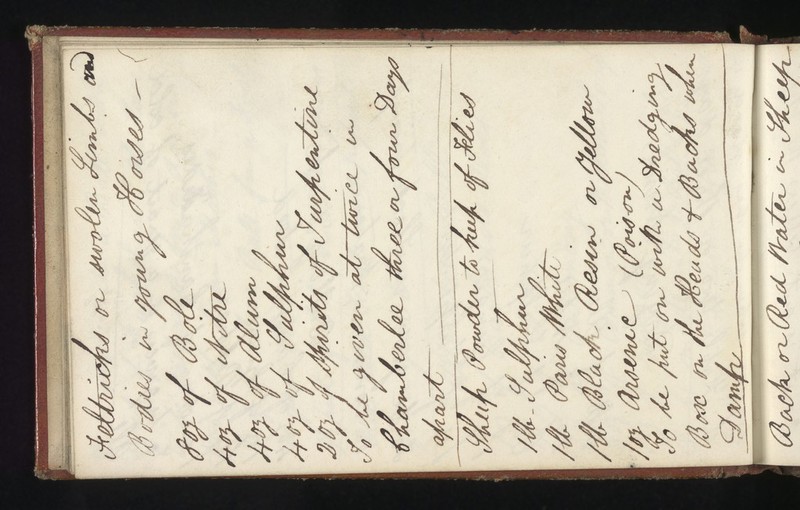 Feltricks or swolen Limbs and
Bodies in young Horses -
8oz of Bole
4oz of Nitre
4oz of Alum
4oz of Sulphur
2oz of Spirits of Turpentine
To be given at twice in
Chamberlee three or four Days
apart
Sheep Powder to keep of Flies
1lb Sulphur
1lb Paris White
1lb Black Resin or Yellow
1oz Arsenic (Poison)
To be put on with a Dredging
Box on the Heads & Backs when
Damp
Back or Red Water in Sheep